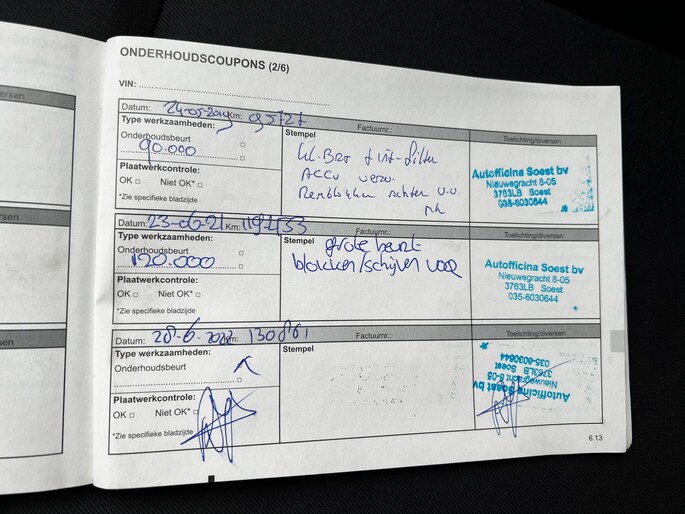 ersien
ONDERHOUDSCOUPONS (2/6)
VIN:
Datum: 24-05-2019 Km: 95727
Factuurnr.:
Toelichting/diversen
Type werkzaamheden:
Onderhoudsbeurt
90.000
Plaatwerkcontrole:
OK □ Niet OK* □
*Zie specifieke bladzijde
Stempel
kl. Brt + int-filter
Accu verv.
Remblokken achter v.v.
Autofficina Soest bv
Nieuwegracht 8-05
3763LB Soest
035-6030644
Datum: 23-06-21 Km:
Factuurnr.:
Toelichting/diversen
Type werkzaamheden:
Onderhoudsbeurt
120.000
Plaatwerkcontrole:
OK □ Niet OK* □
*Zie specifieke bladzijde
Stempel
grote beurt
blokken/schijven voor
Autofficina Soest bv
Nieuwegracht 8-05
3763LB Soest
035-6030644
Datum: 28-6-2022 130861
Factuurnr.:
Toelichting/diversen
Type werkzaamheden:
Onderhoudsbeurt
Plaatwerkcontrole:
OK □ Niet OK* □
*Zie specifieke bladzijde
Stempel
Autofficina Soest bv
Nieuwegracht 8-05
3763LB Soest
035-6030644
6.13